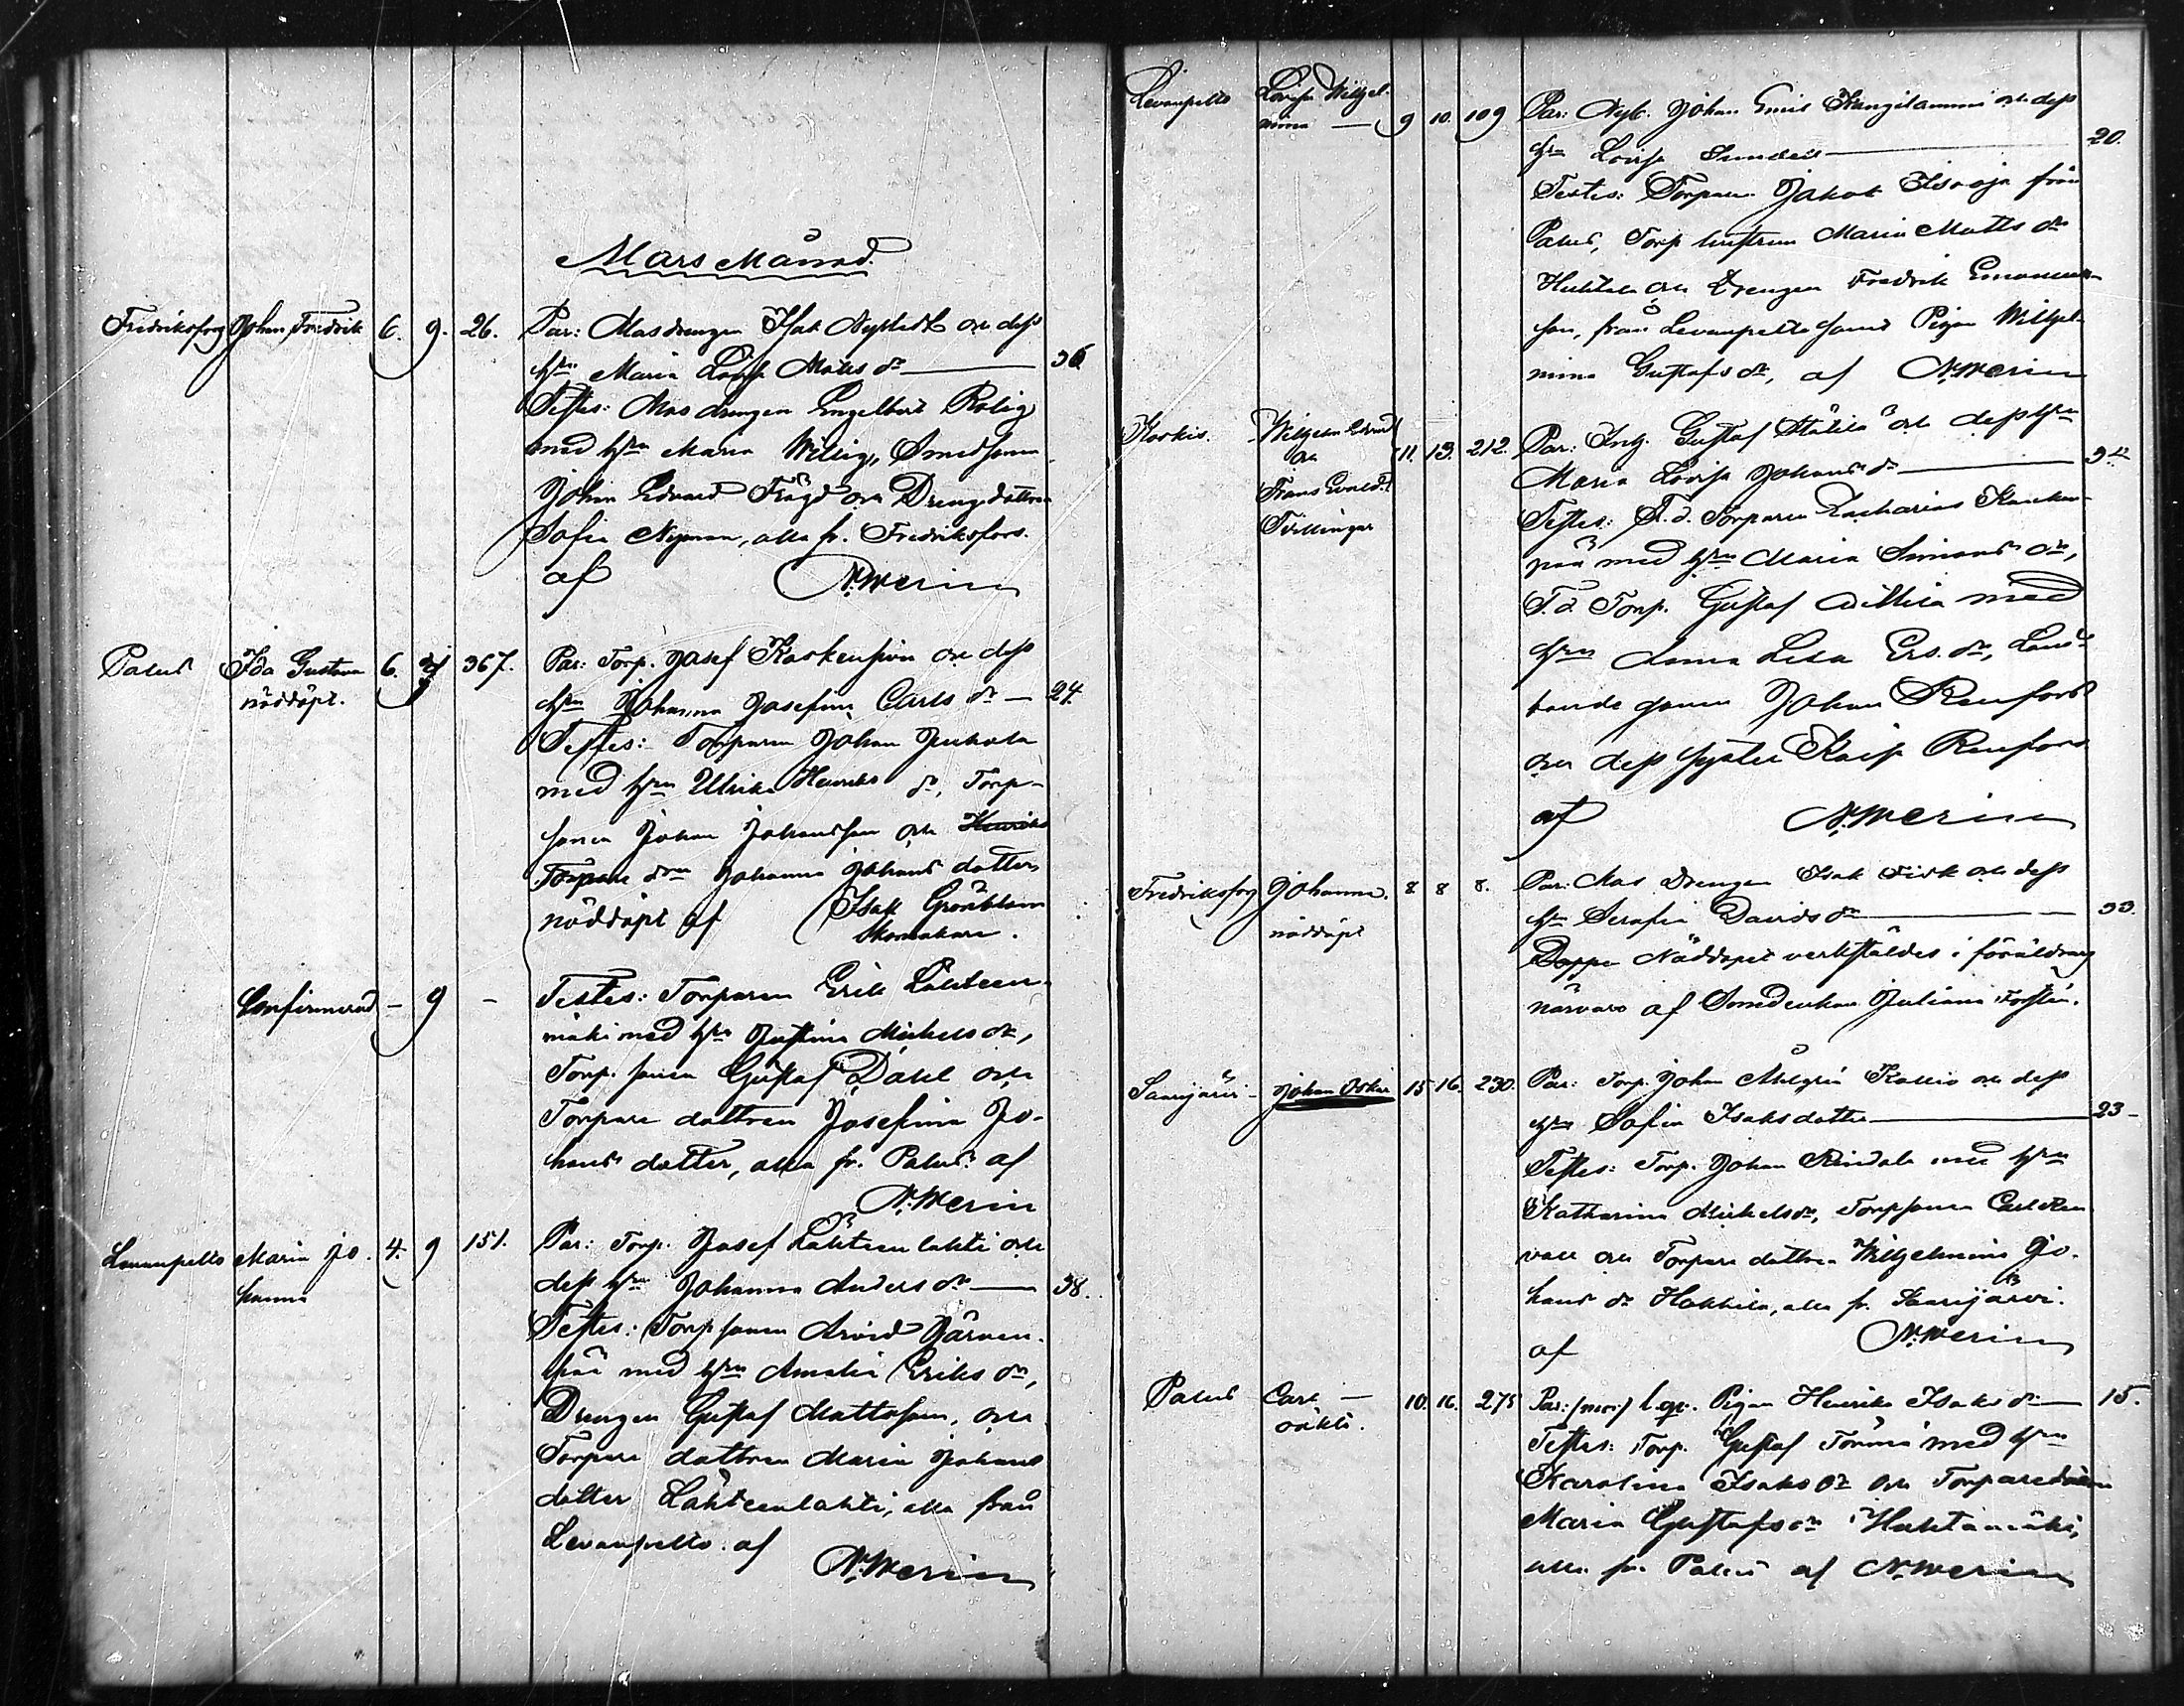 Mars Månad.
Fredriksfors Johan Fredrik 6. 9. 26. Par: Masdrengen Isak Nystedt och dess
hru Maria Lovisa Matts dr — 36
Testes: Masdrengen Engelbert Rolig
med hru Maria Wilig, Smedsonen
Johan Edvard Frägd och Drengdottren
Sofia Nyman, alla fr. Fredriksfors.
af N. Merin
Palus Ida Gustava 6. 7 367. Par: Torp. Josef Koskensivu och dess
nöddöpt. hru Johanna Josefina Carls dr — 24.
Testes: Torparen Johan Juhola
med hru Ulrika Henriks dr, Torp-
sonen Johan Johansson och Henriks
Torpare drn Johanna Johans dotter
nöddöpt af Isak Grönblom
Skomakare.
Confirmerad — 9 — Testes: Torparen Erik Lähteen-
mäki med hru Justina Michels dr,
Torp. sonen Gustaf Dahl och
Torpare dottren Josefina Jo-
hans dotter, alla fr. Palus. af
N. Merin
Levanpelto Maria Jo- 4. 9 151. Par: Torp. Josef Lähteenlahti och
hanna dess hru Johanna Anders dr — 38.
Testes: Torpsonen Arvid Järven-
pää med hru Amalia Eriks dr,
Drengen Gustaf Mattsson, och
Torpare dottren Maria Johans
dotter Lähteenlahti, alla från
Levanpelto. af
N. Merin
Levanpelto Lovisa Wilhel-
mina — 9 10. 109 Par: Nyb. Johan Emil Kangilammi och dess
hru Lovisa — 20.
Testes: Torparen Jakob Isooja från
Palus, Torp hustrun Maria Matts dr
Huhtala och Drengen Fredrik Emanuels-
son, från Levanpelto samt Pigan Wilhel-
mina Gustafs dr, af N. Merin
Koskis. Wilhelm Edvard 11. 13. 212. Par: Inh. Gustaf Mälilä och dess hru
och Maria Lovisa Johans dr —
Frans Evald. Testes: F.d. Torparen Zacharias Kanken-
Tvillingar pää med hru Maria Simons dr,
F.d. Torp. Gustaf med
hru Anna Lisa Ers. dr, Land-
bonde sonen Johan Renfors
och dess syster Kaisa Renfors
af N. Merin
Fredriksfors Johanna. 8 8 8. Par: Mas Drengen Isak Fisk och dess
nöddöpt hru Serafia Davids dr — 33.
Doppe Nöddopet verkställdes i föräldrars
närvaro af Smedenkan Juliana Forstén.
Saarijärvi — Johan Oskar 15 16. 230. Par: Torp. Johan Ahlgrén Kallio och dess
hru Sofia Isaksdotter — 23 —
Testes: Torp. Johan Rindala med hru
Katharina Michelsdr, Torpsonen Carl Ren-
vall och Torpare dottren Wilhelmina Jo-
hans dr Hakkila, alla fr. Saarijärvi.
af N. Merin
Palus Carl — 10. 16. 275 Par: Pigan Henrika Isaks dr — 15.
oäkta. Testes: Torp. Gustaf Törmä med hru
Karolina Isaks dr och Torparedottren
Maria Gustafs dr Huhtamäki,
alla fr. Palus af N. Merin